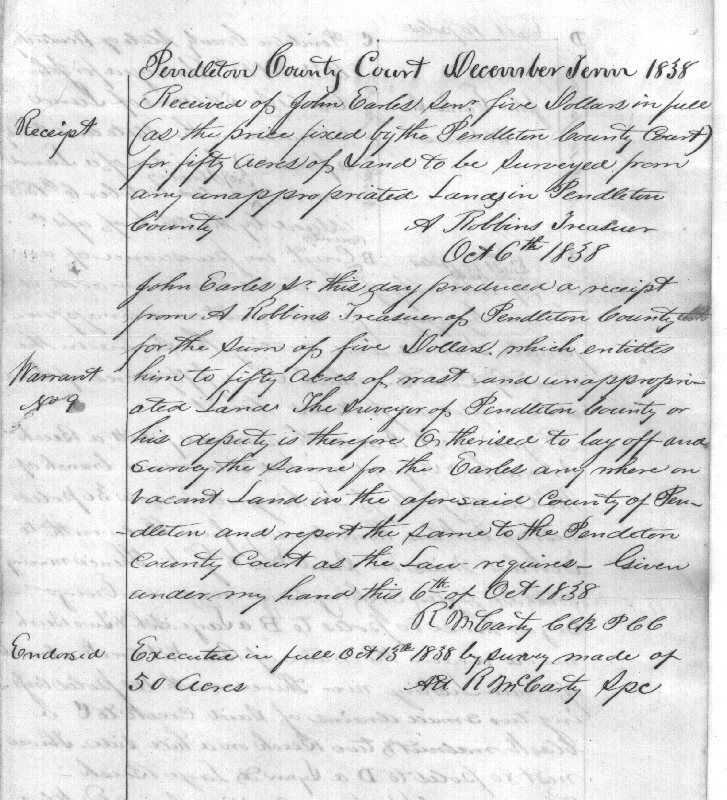 Pendleton County Court December Term 1838
Receipt
Received of John Earles Senr. five Dollars in full
(as the price fixed by the Pendleton County Court)
for fifty Acres of Land to be Surveyed from
any unappropriated Lands in Pendleton
County
A Robbins Treasuer
Oct 6th 1838
John Earles Sr. this day produced a receipt
from A Robbins Treasuer of Pendleton County
for the Sum of five Dollars. which entitles
Warrant
No 9
him to fifty Acres of wast and unappropri-
ated Land. The Surveyor of Pendleton County or
his deputy is therefore Ortherised to lay off and
Survey the Same for the Earles any where on
vacant Land in the aforesaid County of Pen-
-dleton and report the Same to the Pendleton
County Court as the Law requires - Given
under my hand this 6th of Oct 1838
R McCarty Clk P C C
Endorsed
Executed in full Oct 13th 1838 by Survey made of
50 Acres
Att R McCarty Spc